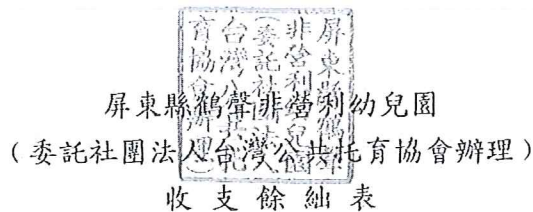 屏東縣鶴聲非營利幼兒園
（委託社團法人台灣公共托育協會辦理）
收支餘絀表